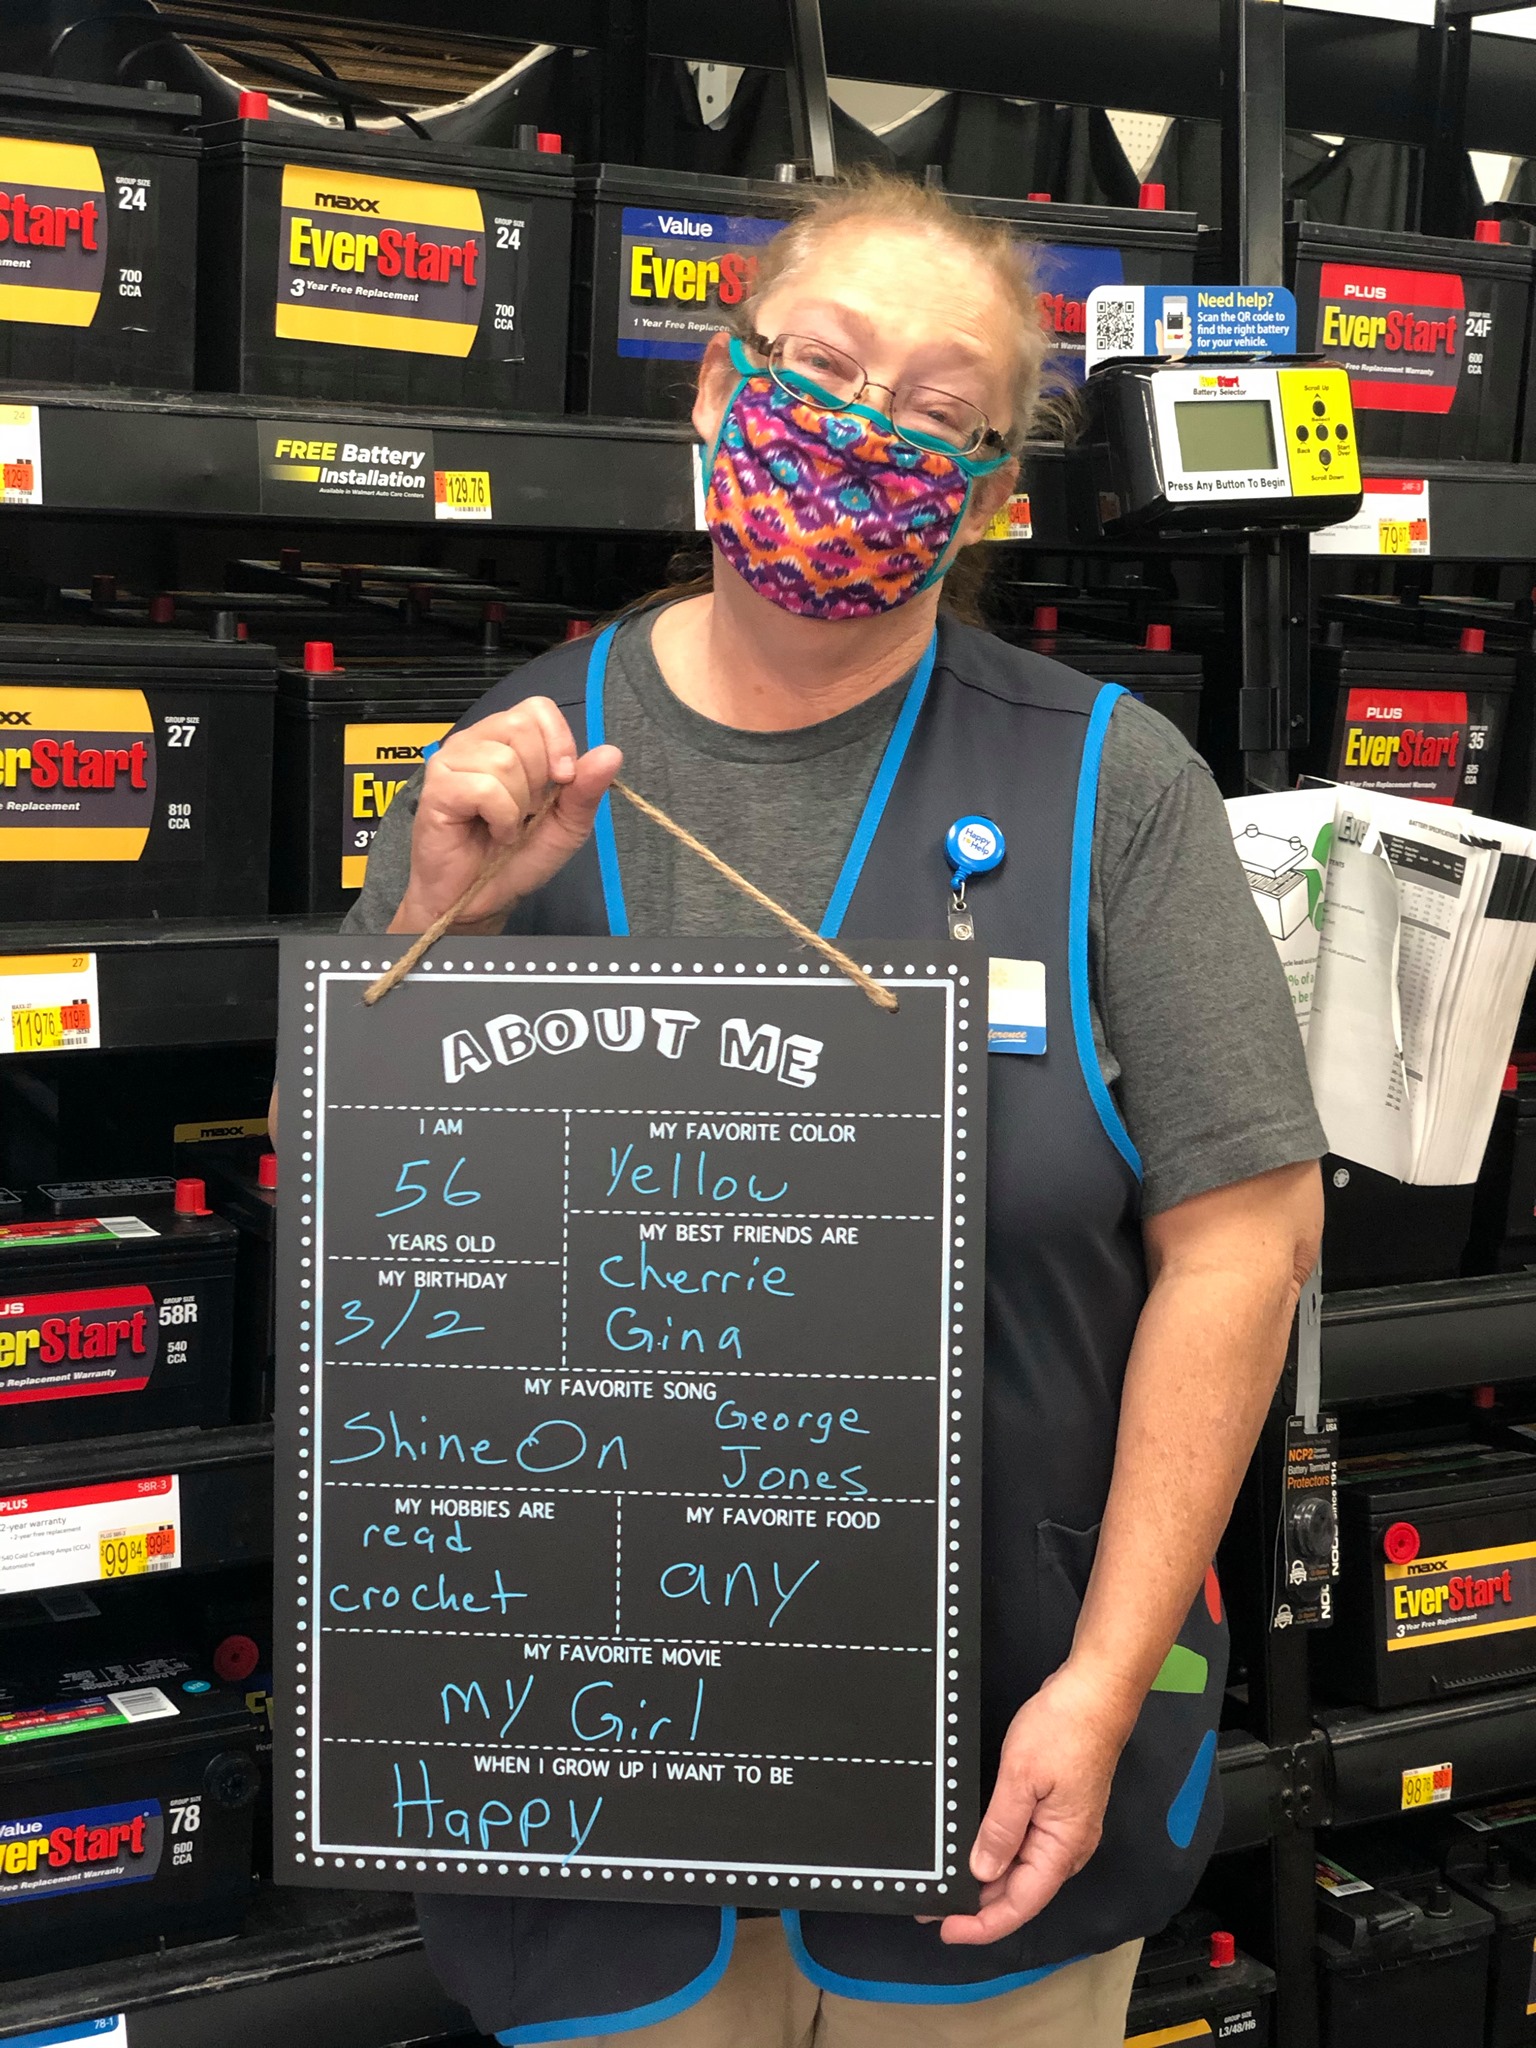 maxx
EverStart
3 Year Free Replacement
GROUP SIZE
24
700
CCA
GROUP SIZE
24
700
CCA
Value
1 Year Free
Need help?
Scan the QR code to
find the right battery
for your vehicle.
PLUS
EverStart
Free Replacement Warranty
GROUP SIZE
24F
600
CCA
EverStart
Battery Selector
Scroll Up
Select
Back
Start
Over
Scroll Down
Press Any Button To Begin
FREE Battery
Installation
Available in Walmart Auto Care Centers
129.76
24
24F-3
GROUP SIZE
27
810
CCA
PLUS
EverStart
35
525
CCA
Happy
to
Help
BATTERY SPECIFICATIONS
27
MAXX-27
$119.76
ABOUT ME
I AM
56
YEARS OLD
MY FAVORITE COLOR
Yellow
MY BIRTHDAY
3/2
MY BEST FRIENDS ARE
Cherrie
Gina
MY FAVORITE SONG
Shine On George
Jones
MY HOBBIES ARE
read
crochet
MY FAVORITE FOOD
any
MY FAVORITE MOVIE
My Girl
WHEN I GROW UP I WANT TO BE
Happy
maxx
GROUP SIZE
58R
540
CCA
Replacement Warranty
58R-3
PLUS
2-year warranty
540 Cold Cranking Amps (CCA)
Automotive
$99.84
Value
GROUP SIZE
78
600
CCA
Free Replacement Warranty
78-1
MADE IN
USA
NCP2
Battery Terminal
Protectors
since 1914
maxx
EverStart
3 Year Free Replacement
$98.76
GROUP SIZE
L3/48/H6